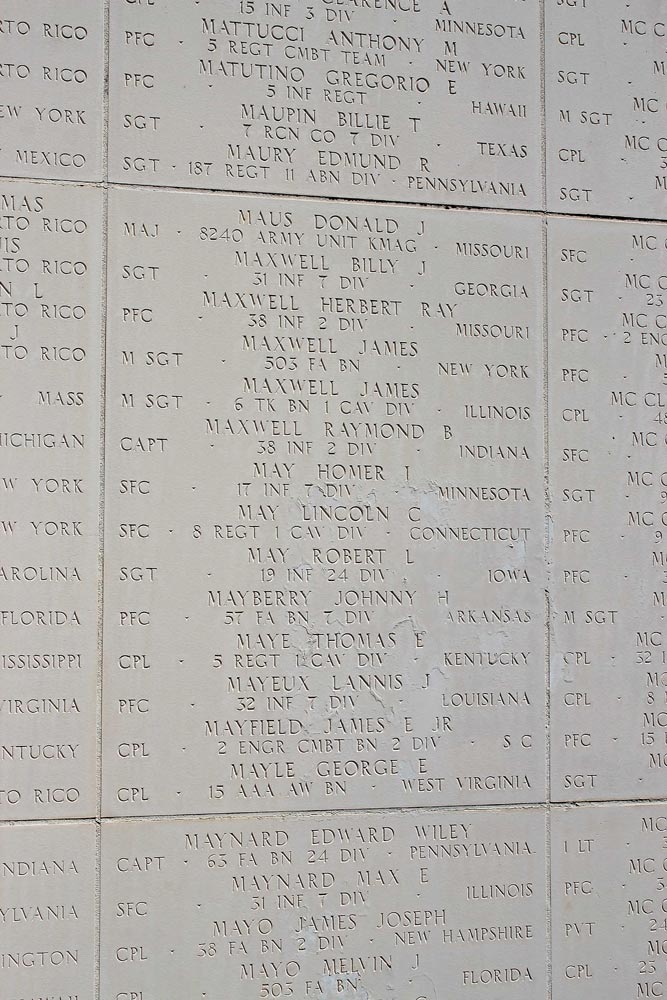 CLARENCE A
15 INF 3 DIV · MINNESOTA
MATTUCCI ANTHONY M
PFC · 5 REGT CMBT TEAM · NEW YORK
MATUTINO GREGORIO E
PFC · 5 INF REGT · HAWAII
MAUPIN BILLIE T
SGT · 7 RCN CO 7 DIV · TEXAS
MAURY EDMUND R
SGT · 187 REGT 11 ABN DIV · PENNSYLVANIA
MAUS DONALD J
MAJ · 8240 ARMY UNIT KMAG · MISSOURI
MAXWELL BILLY J
SGT · 31 INF 7 DIV · GEORGIA
MAXWELL HERBERT RAY
PFC · 38 INF 2 DIV · MISSOURI
MAXWELL JAMES
M SGT · 503 FA BN · NEW YORK
MAXWELL JAMES
M SGT · 6 TK BN 1 CAV DIV · ILLINOIS
MAXWELL RAYMOND B
CAPT · 38 INF 2 DIV · INDIANA
MAY HOMER I
SFC · 17 INF 7 DIV · MINNESOTA
MAY LINCOLN C
SFC · 8 REGT 1 CAV DIV · CONNECTICUT
MAY ROBERT L
SGT · 19 INF 24 DIV · IOWA
MAYBERRY JOHNNY H
PFC · 57 FA BN 7 DIV · ARKANSAS
MAYE THOMAS E
CPL · 5 REGT 1 CAV DIV · KENTUCKY
MAYEUX LANNIS J
PFC · 32 INF 7 DIV · LOUISIANA
MAYFIELD JAMES E JR
CPL · 2 ENGR CMBT BN 2 DIV · S C
MAYLE GEORGE E
CPL · 15 AAA AW BN · WEST VIRGINIA
MAYNARD EDWARD WILEY
CAPT · 63 FA BN 24 DIV · PENNSYLVANIA
MAYNARD MAX E
SFC · 31 INF 7 DIV · ILLINOIS
MAYO JAMES JOSEPH
CPL · 38 FA BN 2 DIV · NEW HAMPSHIRE
MAYO MELVIN J
CPL · 503 FA BN · FLORIDA
RICO
RICO
YORK
MEXICO
RICO
RICO
L
RICO
J
RICO
· MASS
YORK
YORK
FLORIDA
RICO
SGT
CPL · MC
SGT
M SGT · MC
CPL · MC
SGT
SFC · MC
SGT · MC
23
PFC · MC
2
PFC
CPL · MC
SFC · MC
SGT · MC
PFC · MC
9
PFC
M SGT
CPL · MC
32
CPL
8
PFC
15
SGT
1 LT
PFC
PVT · MC
24
CPL
23